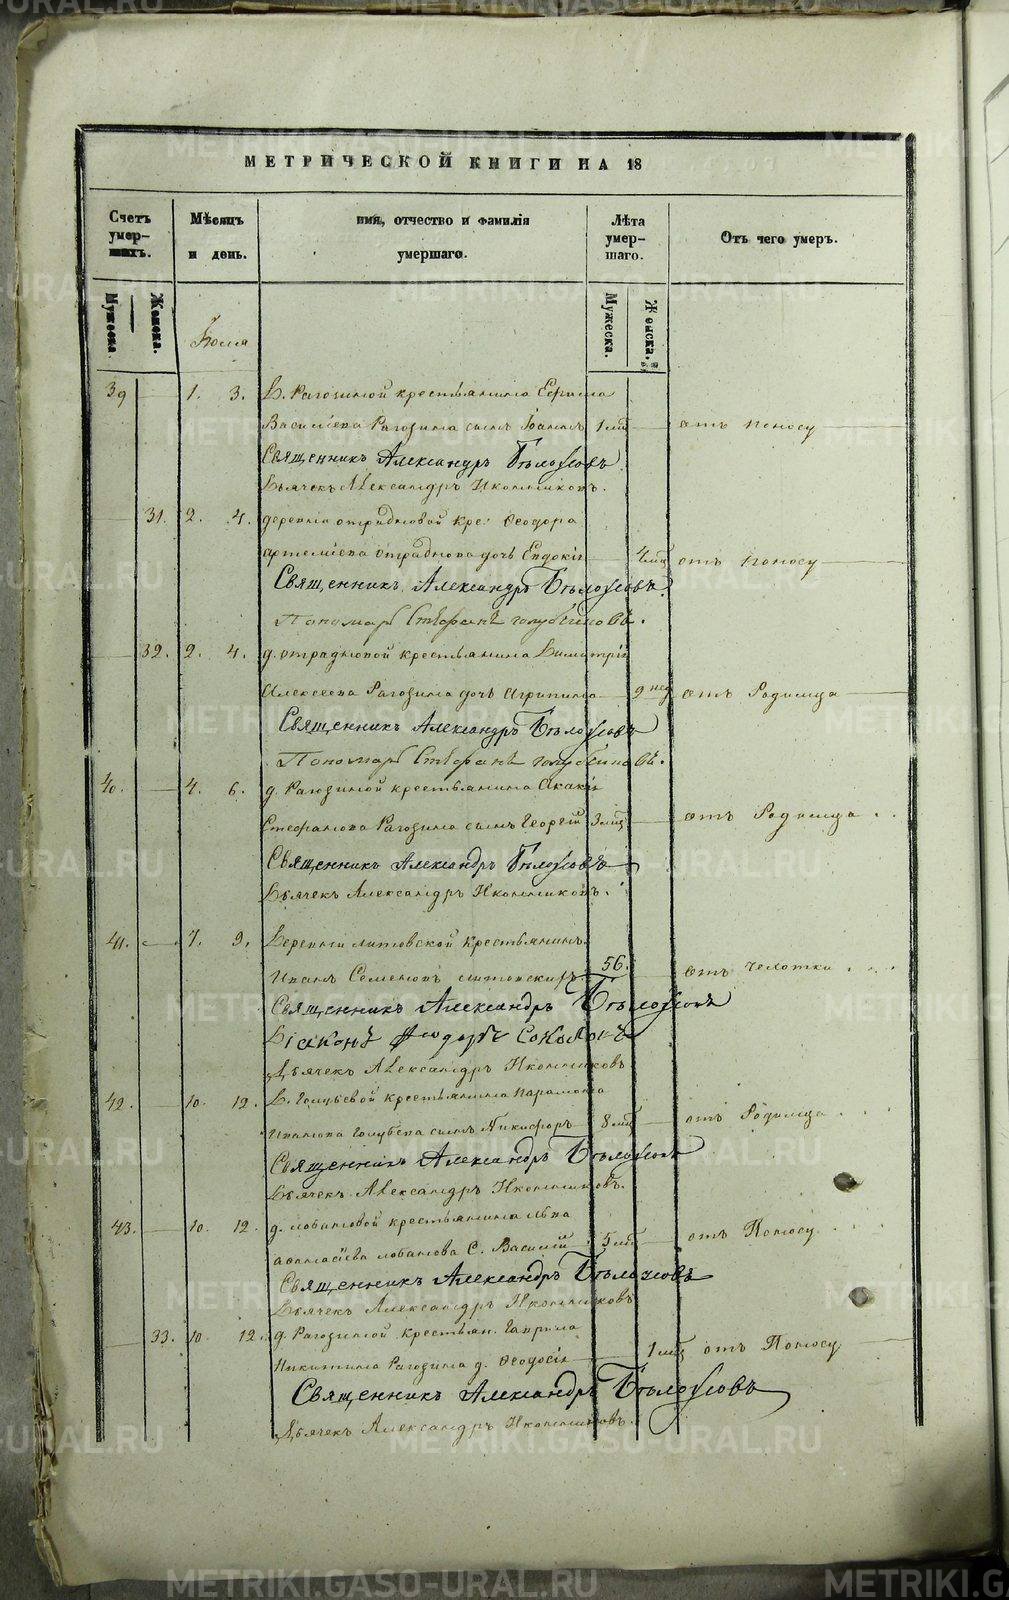 МЕТРИЧЕСКОЙ КНИГИ НА 18
Счетъ умер-шихъ. Мѣсяцъ и день. имя, отчество и фамилія умершаго. Лѣта умер-шаго. Отъ чего умеръ.
Мужеска. Женска. Мужеска. Женска.
Іюля
39 1. 3. Д. Рагозиной крестьянина Ефима
Василіева Рагозина сынъ Іоаннъ 1 мц отъ поносу
Священникъ Александръ Бѣлоусовъ
Дьячекъ Александръ Иконниковъ.
31. 2. 4. деревни отрадновой кре: Ѳеодора
артеміева отраднова дочь Евдокія 4 мц отъ поносу
Священникъ Александръ Бѣлоусовъ.
Пономарь Стефанъ Голубчиковъ.
32. 2. 4. д. отрадновой крестьянина Димитрія
Алексѣева Рагозина дочь Агрипина 9 нед отъ Родимца
Священникъ Александръ Бѣлоусовъ
Пономарь Стефанъ Голубчиковъ.
40. 4. 6. д. Рагозиной крестьянина Акакія
Стефанова Рагозина сынъ Георгій 3 мц отъ Родимца
Священникъ Александръ Бѣлоусовъ
Дьячекъ Александръ Иконниковъ.
41. 7. 9. Деревни литовской крестьянинъ
Иванъ Семеновъ литовскихъ 56. отъ чахотки
Священникъ Александръ Бѣлоусовъ
Діаконъ Ѳеодоръ Соколовъ
Дьячекъ Александръ Иконниковъ
42. 10. 12. Д. Голубевой крестьянина Парамона
Иванова Голубева сынъ Никифоръ 8 мц отъ Родимца
Священникъ Александръ Бѣлоусовъ
Дьячекъ Александръ Иконниковъ.
43. 10. 12. д. лобановой крестьянина льва
афанасіева лобанова С. Василій 5 мц отъ Поносу.
Священникъ Александръ Бѣлоусовъ
Дьячекъ Александръ Иконниковъ
33. 10. 12. д. Рагозиной крестьян. Гаврила
Никитина Рагозина д. Ѳеодосія 1 мц отъ Поносу
Священникъ Александръ Бѣлоусовъ
Дьячекъ Александръ Иконниковъ.
METRIKI.GASO-URAL.RU